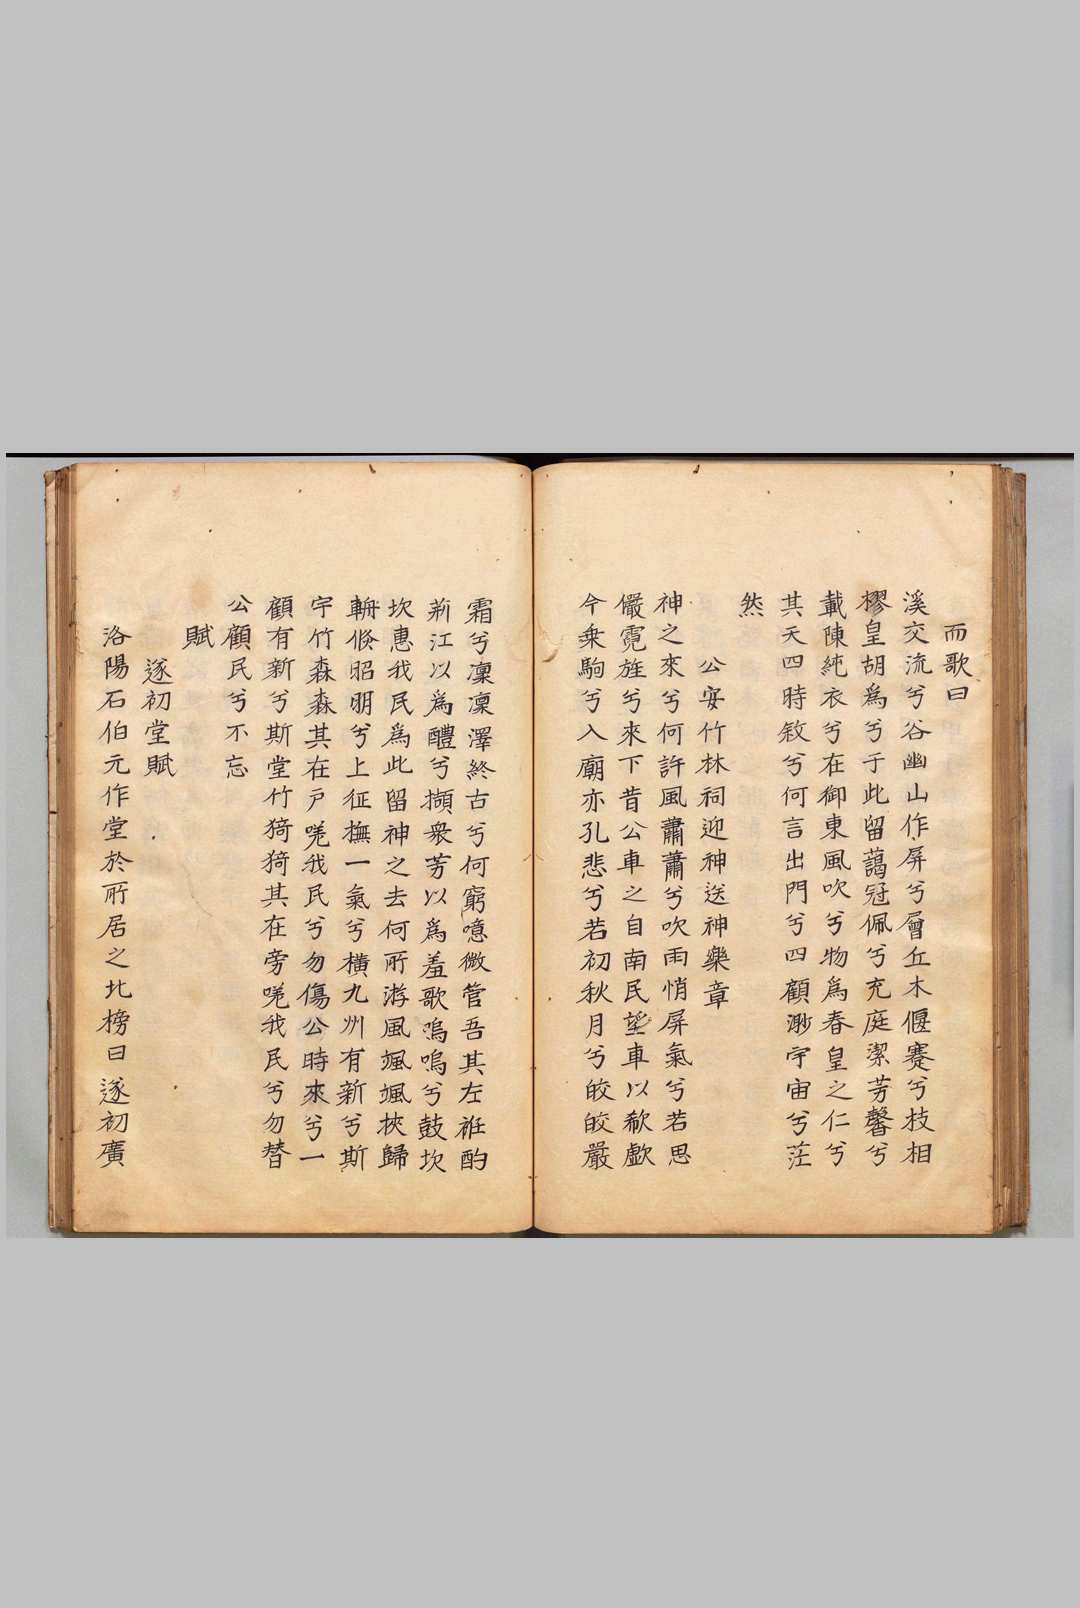 而歌曰
溪交流兮谷幽山作屏兮層丘木偃蹇兮枝相
樛皇胡為兮于此留藹冠佩兮充庭潔芳馨兮
載陳純衣兮在御東風吹兮物為春皇之仁兮
其天四時敘兮何言出門兮四顧渺宇宙兮茫
然
公安竹林祠迎神送神樂章
神之來兮何許風蕭蕭兮吹雨悄屏氣兮若思
儼霓旌兮來下昔公車之自南民望車以欷歔
今乗駒兮入廟亦孔悲兮若初秋月兮皎皎嚴
霜兮凜凜澤終古兮何窮噫微管吾其左袵酌
荊江以為醴兮擷衆芳以為羞歌嗚嗚兮鼓坎
坎惠我民為此留神之去何所㳺風颯颯挾歸
輈倐昭明兮上征撫一氣兮橫九州有新兮斯
宇竹森森其在戸嗟我民兮勿傷公時來兮一
顧有新兮斯堂竹猗猗其在旁嗟我民兮勿替
公顧民兮不忘
賦
遂初堂賦
洛陽石伯元作堂於所居之北榜曰遂初廣